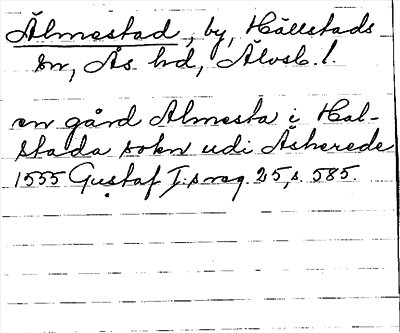 Älmestad, by, Hällstads
sn, Ås hd, Älvsb. l.
en gård Almesta i Hal-
stada sokn udi Åsherede
1555 Gustaf I:s reg. 25, s. 585.